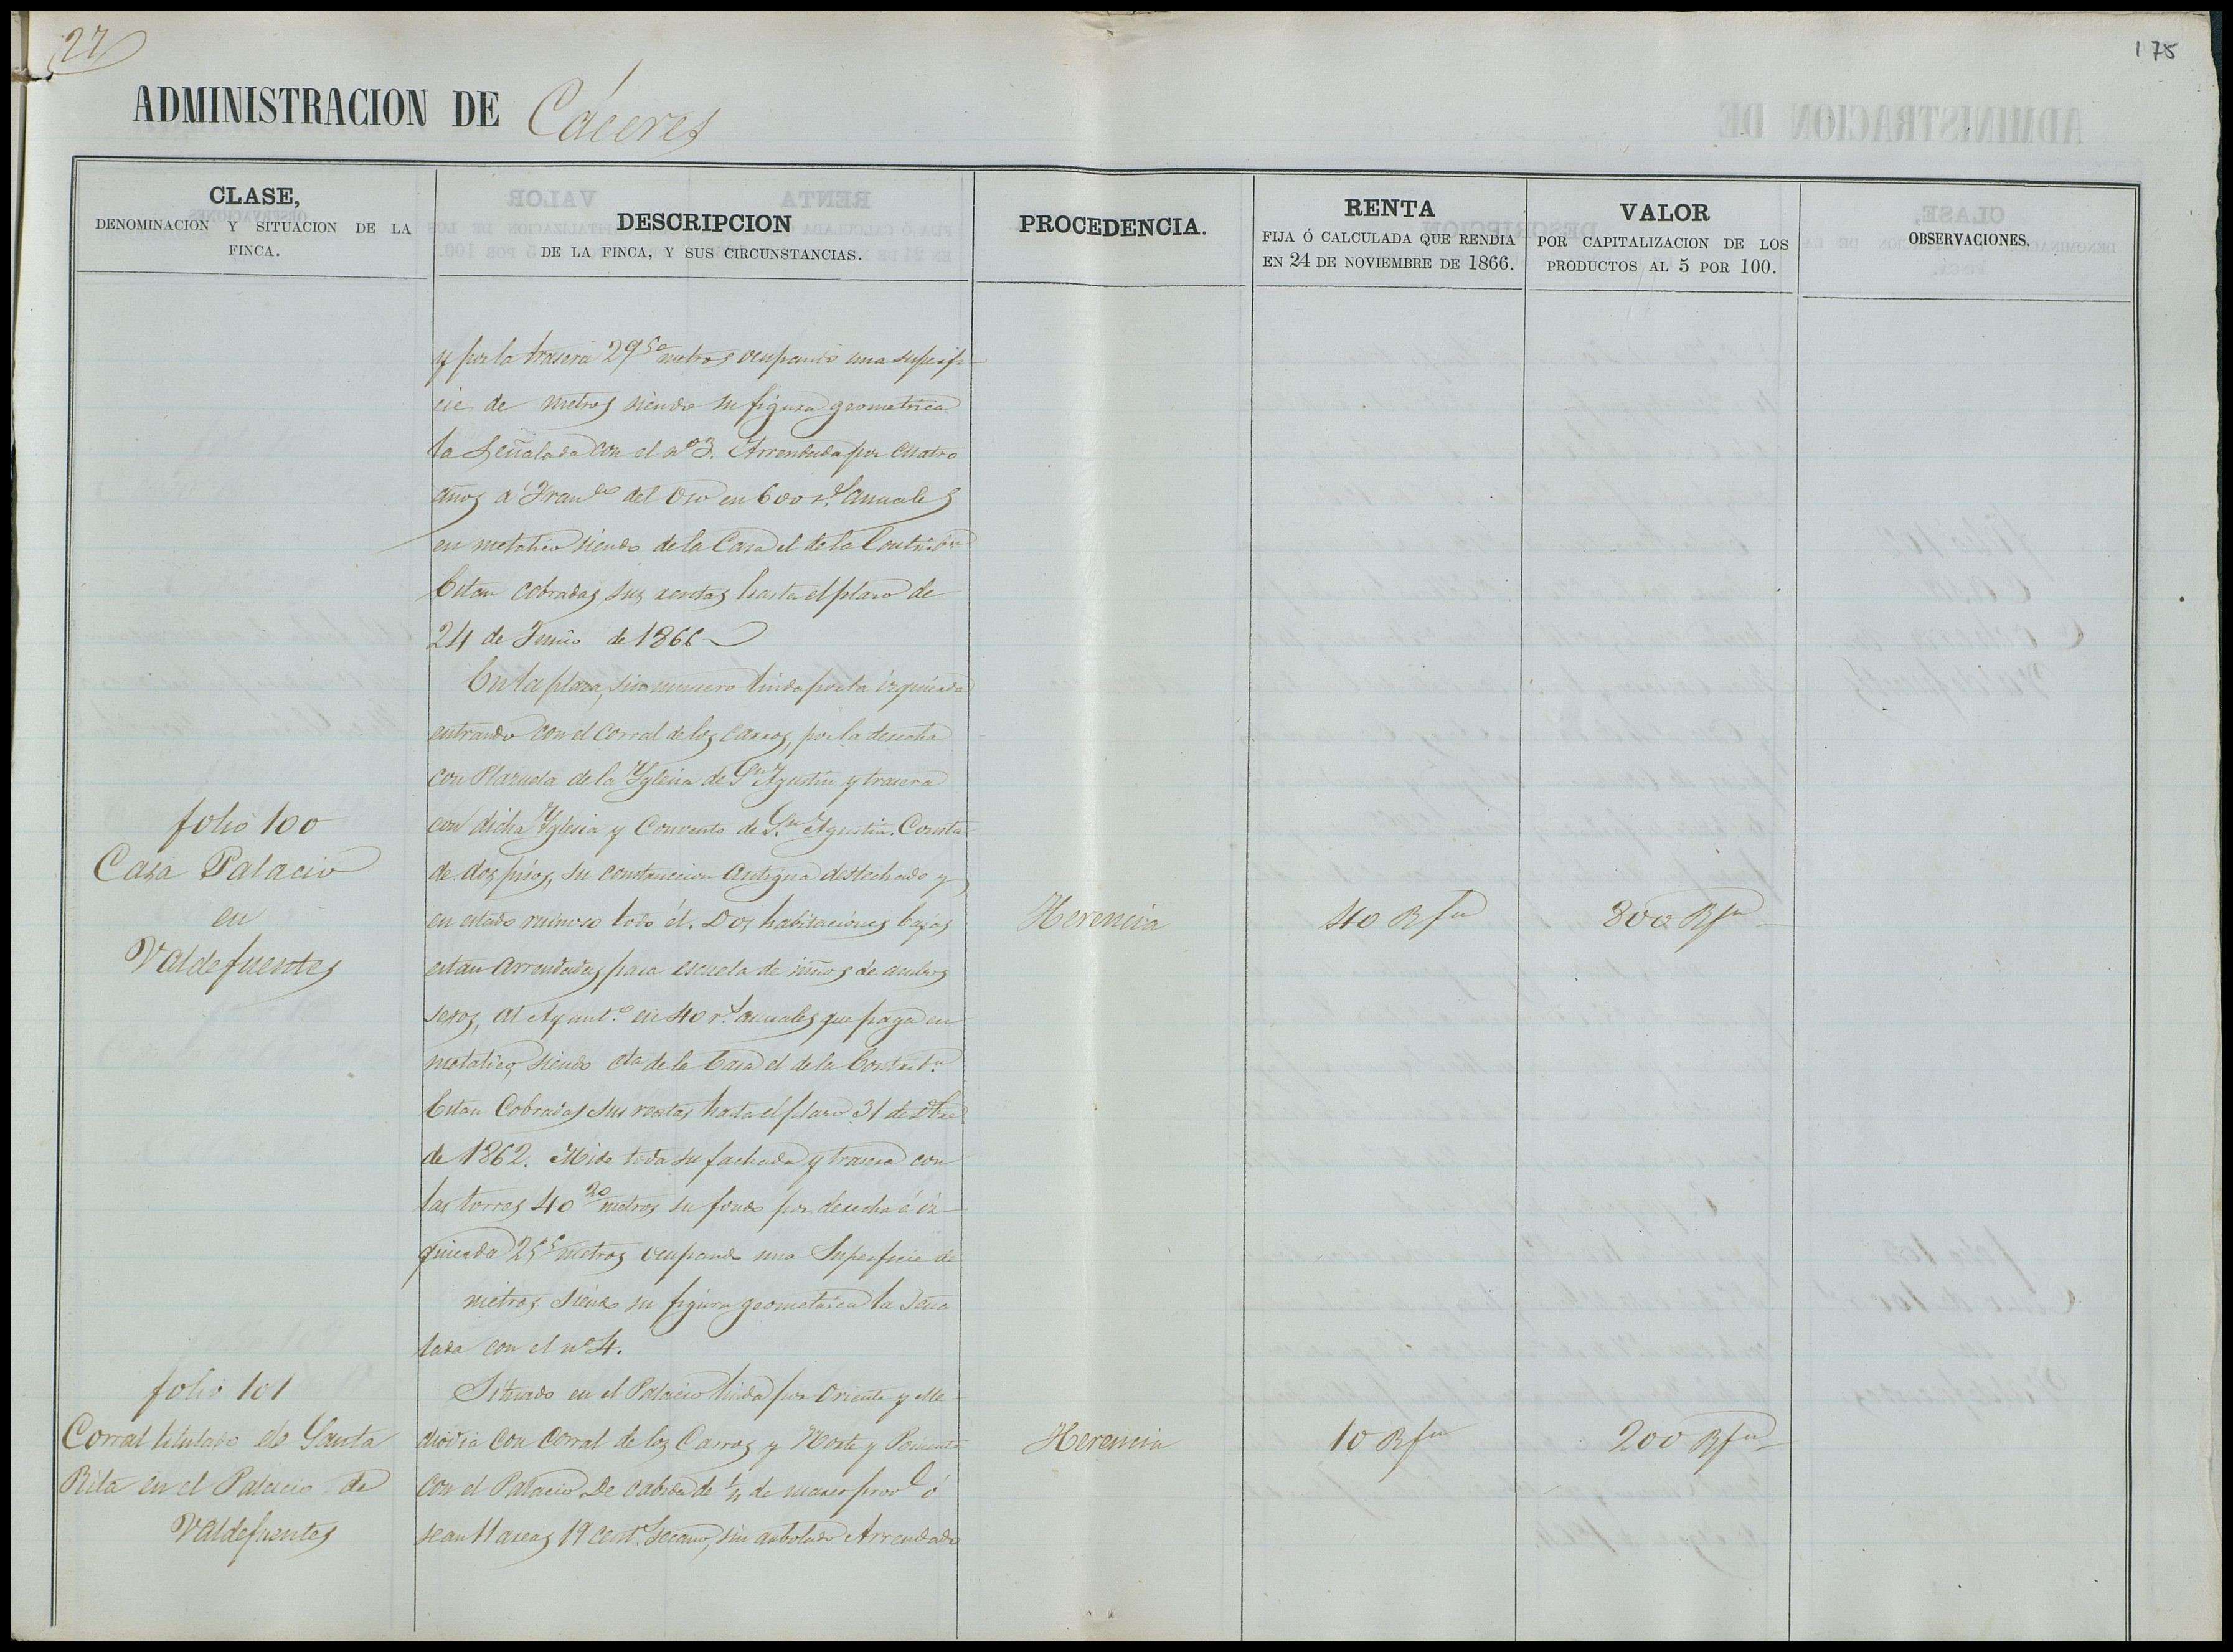 27
175
ADMINISTRACION DE Cáceres
CLASE,
DENOMINACION Y SITUACION DE LA
FINCA.
DESCRIPCION
DE LA FINCA, Y SUS CIRCUNSTANCIAS.
PROCEDENCIA.
RENTA
FIJA Ó CALCULADA QUE RENDIA
EN 24 DE NOVIEMBRE DE 1866.
VALOR
POR CAPITALIZACION DE LOS
PRODUCTOS AL 5 POR 100.
OBSERVACIONES.
y por la trasera 29 50 metros ocupando una superfi-
cie de metros siendo su figura geometrica
la Señalada con el nº 3. Arrendada por cuatro
años á Franco del Oso en 600 rs. anuales
en metalico siendo de la Casa el de la Contribn
Estan cobradas sus rentas hasta el plazo de
24 de Junio de 1866
En la plaza, sin numero linda por la izquierda
entrando con el corral de los carros, por la derecha
con Plazuela de la Yglesia de Sn Agustin y trasera
con dicha Yglesia y Convento de Sn. Agustin. Consta
de dos pisos, su construccion antigua destechado y
en estado ruinoso todo él. Dos habitaciones bajas
estan arrendadas para escuela de niños de ambos
sexos, al Ayunto. en 40 rs. anuales que paga en
metalico, siendo cta de la Casa el de la Contribn.
Estan Cobradas sus rentas hasta el plazo 31 de Dbre
de 1862. Mide toda su fachada y trasera con
las torres 40 20 metros su fondo por derecha é iz-
quierda 25 5 metros ocupando una Superficie de
metros siendo su figura geometrica la Seña
lada con el nº 4.
folio 100
Casa Palacio
en
Valdefuentes
Herencia
40 Rs vn
800 Rs vn
Situado en el Palacio linda por Oriente y Me-
diodia con corral de los Carros y Norte y Poniente
con el Palacio. De cabida de de marco provl. ó
sean 11 areas 19 cent. secano, sin arbolado Arrendado
folio 101
Corral titulado de Santa
Rita en el Palacio de
Valdefuentes
Herencia
10 Rs vn
200 Rs vn